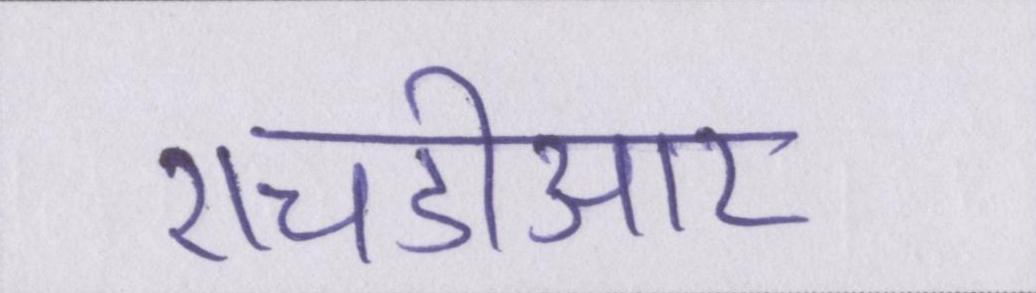 एचडीआर